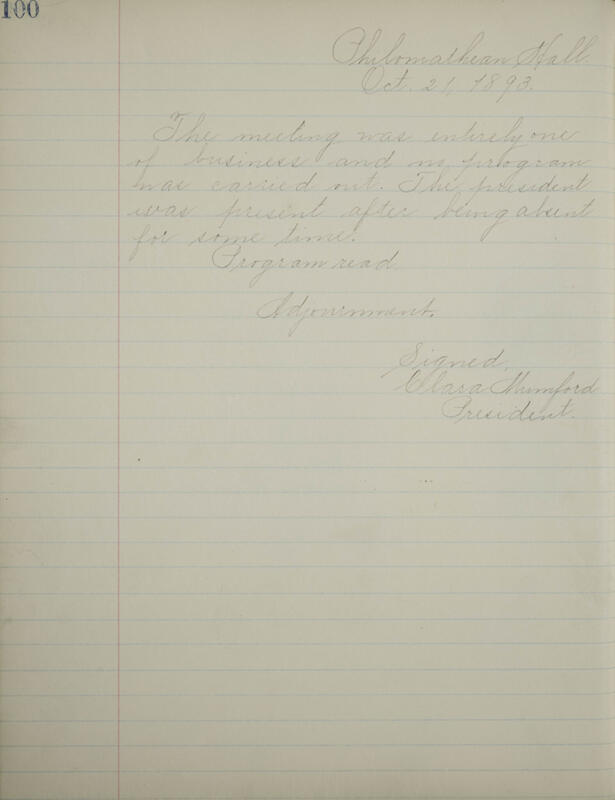 100
Philomathean Hall.
Oct. 21, 1893.
The meeting was entirely one
of business and no program
was carried out. The president
was present after being absent
for some time.
Program read.
Adjournment.
Signed,
Clara Mumford
President.